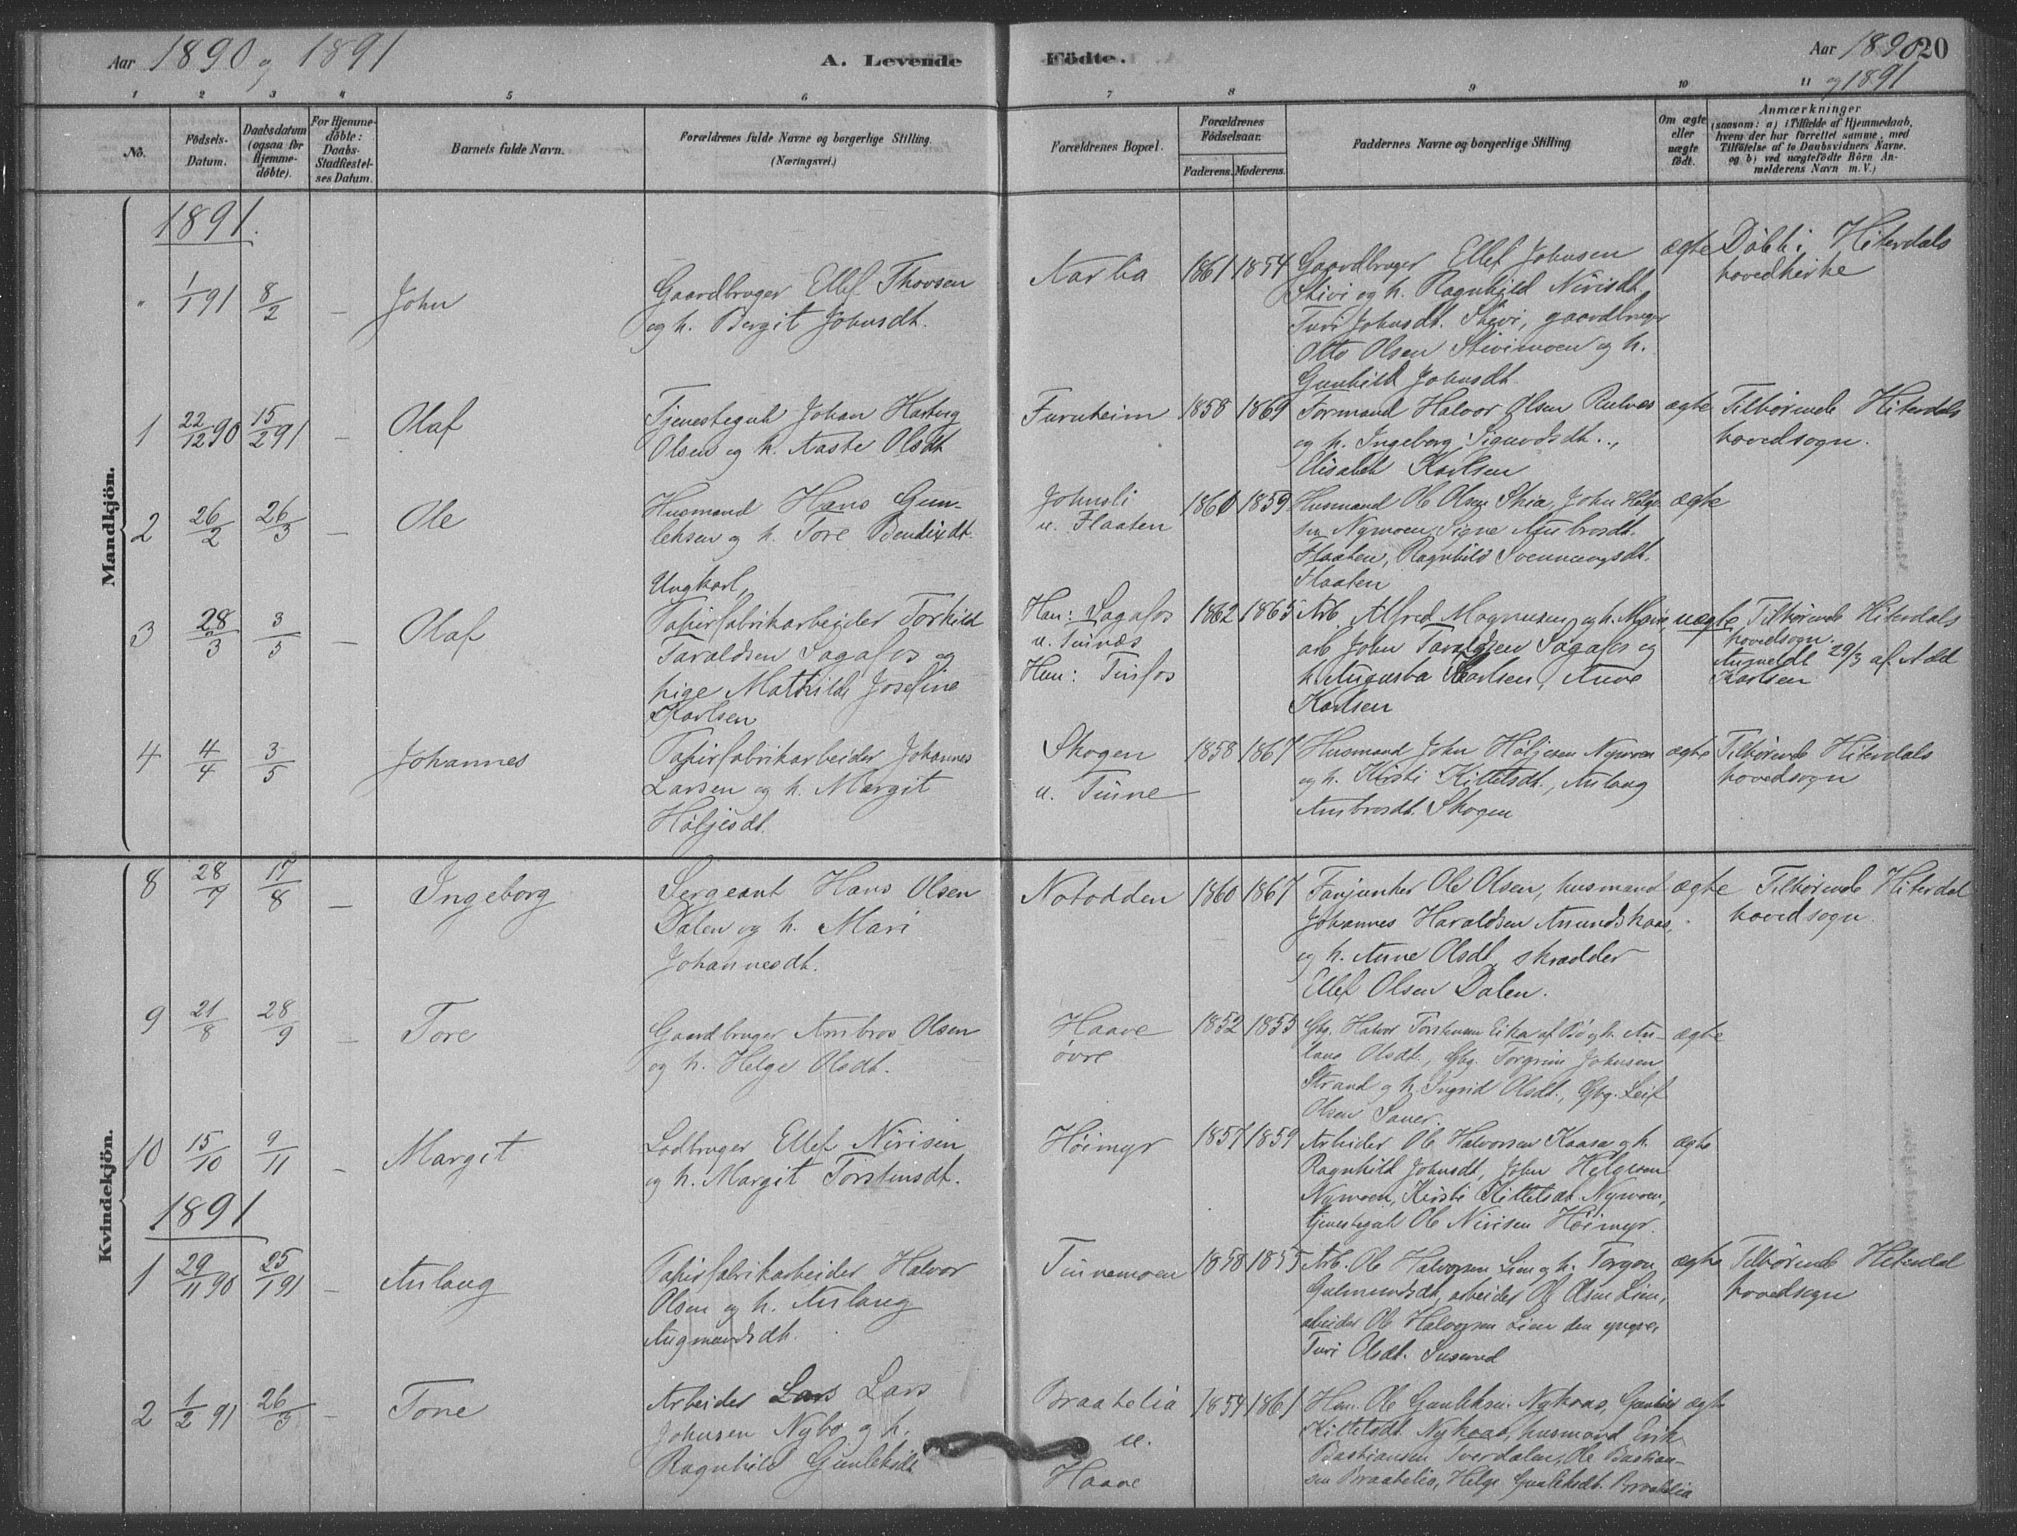 Aar 1890 og 1891
A. Levende Fødte.
Aar 1890 20
og 1891
1 2 3 4 5 6 7 8 9 10 11
Nö.
Födsels-Datum.
Daabsdatum (ogsaa for Hjemme-döbte).
For Hjemme-döbte: Daabs-Stadfæstel-ses Datum.
Barnets fulde Navn.
Forældrenes fulde Navne og borgerlige Stilling. (Næringsvei.)
Forældrenes Bopæl.
Forældrenes Födselsaar.
Faderens. Moderens.
Faddernes Navne og borgerlige Stilling
Om ægte eller uægte födt.
Anmærkninger
(saasom: a) i Tilfælde af Hjemmedaab,
hvem der har forrettet samme, med
Tilföielse af to Daabsvidners Navne.
og b) ved uægtefödte Börn An-
melderens Navn m. V.)
Mandkjön.
1891.
" 1/1 91 8/2 – John
Gaardbruger Ellef Thovsen
og h. Bergit Johnsdt.
Aarlia
1861 1854
Gaardbruger Ellef Johnsen
Stivi og h. Ragnhild Nirisdt,
Turi Johnsdt. Stivi, gaardbruger
Otto Olsen Stivimoen og h.
Gunhild Johnsdt.
ægte
Døbt i Hiterdals
hovedkirke
1 22/12 90 15/2 91 – Olaf
Tjenestegut Johan Harberg
Olsen og h. Aaste Olsdt
Furuheim
1858 1869
Formand Halvor Olsen
og h. Ingeborg Sigurdsdt.,
Elisabet Karlsen
ægte
Tilhørende Hiterdals
hovedsogn.
2 26/2 26/3 – Ole
Husmand Hans Gun-
leksen og h. Tore Bendixdt.
Johnsli
u. Flaaten
1860 1859
Husmand Ole Olsen Skia, John Helge-
sen Nymoen, Signe Ambrosdt.
Flaaten, Ragnhild Svenningsdt.
Flaaten
ægte
3 28/3 3/5 – Olaf
Ungkarl,
Papirfabrikarbeider Torkild
Taraldsen Sagafos og
pige Mathilde Josefine
Karlsen
Han: Sagafos
u. Tinnæs
Hun: Tinfos
1862 1865
Arb. Alfred Magnusen og h. Marie,
arb John Taraldsen Sagafos og
h. Augusta Karlsen, Anne
Karlsen
uægte
Tilhørende Hiterdals
hovedsogn.
Anmeldt 29/3 af Add
Karlsen
4 4/4 3/5 Johannes
Papirfabrikarbeider Johannes
Larsen og h. Margit
Høljesdt.
Skogen
u. Tinne
1858 1867
Husmand John Høljesen Nymoen
og h. Kirsti Kittelsdt., Aslaug
Ambrosdt. Skogen
ægte
Tilhørende Hiterdals
hovedsogn
Kvindekjön.
8 28/7 17/8 – Ingeborg
Sergeant Hans Olsen
Dalen og h. Mari
Johannesdt.
Notodden
1860 1867
Fanjunker Ole Olsen, husmand
Johannes Haraldsen Amundskaas,
og h. Anne Olsdt, skrædder
Ellef Olsen Dalen.
ægte
Tilhørende Hiterdal
hovedsogn.
9 21/8 28/9 – Tore
Gaardbruger Ambros Olsen
og h. Helge Olsdt.
Haave
øvre
1852 1855
Gbg. Halvor Torstensen Eika af Bø og h. As-
laug Olsdt., Gbg. Torgrim Johnsen
Strand og h. Ingrid Olsdt., Gbg. Leif
Olsen Sauer.
ægte
10 15/10 9/11 – Margit
Lodbruger Ellef Nirisen
og h. Margit Torstensdt.
Høimyr
1857 1859
Arbeider Ole Halvorsen Kaasa og h.
Ragnhild Johnsdt, John Helgesen
Nymoen, Kirsti Kittelsdt. Nymoen,
tjenestegut Ole Nirisen Høimyr.
ægte
1891
1 29/11 90 25/1 91 – Aslaug
Papirfabrikarbeider Halvor
Olsen og h. Aslaug
Augmundsdt.
Tinnemoen
1858 1855
Arb. Ole Halvorsen Lien og h. Torgon
arbeider Ole Olsen Lien,
arbeider Ole Halvorsen Lien den yngre,
Turi Olsdt.
ægte
Tilhørende Hiterdal
hovedsogn
2 1/2 91 26/3 – Tone
Arbeider Lars Lars
Johnsen Nybø og h.
Ragnhild Gunleksdt
Braatelia
u.
Haave
1854 1861
Hm. Ole Gunleksen Nykaas, Gunhild
Kittelsdt. Nykaas, husmand Erik
Bastiansen Tverdalen, Ole Bastian-
sen Braatelia, Helge Gunleksdt. Braatelia
ægte